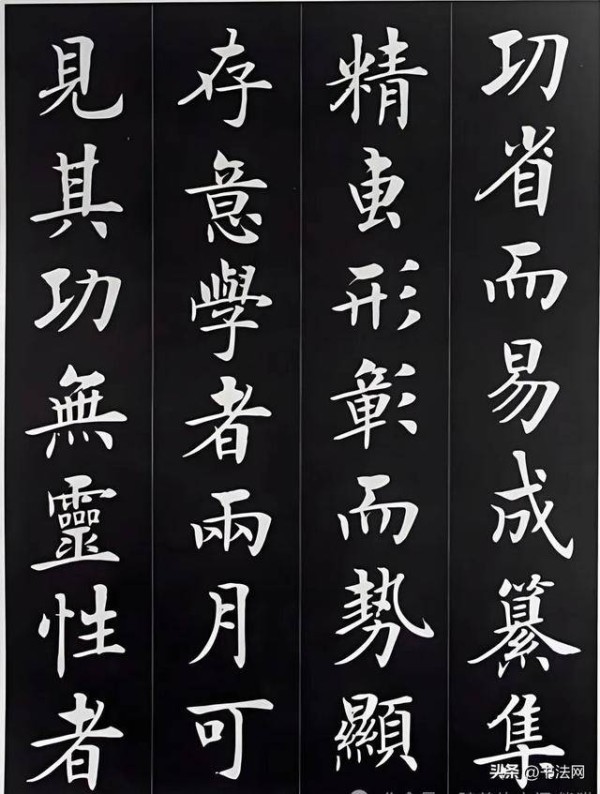 功省而易成纂集
精專形彰而勢顯
存意學者兩月可
見其功無靈性者
头条 @书法网